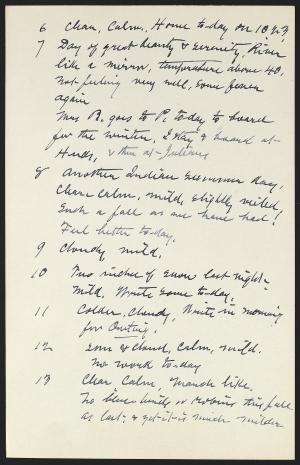 6 Clear, Calm, Home to-day on 10 & 3
7 Day of great beauty & serenity, River
like a mirror, temperature above 40,
Not feeling very well, some fever
again
Mrs B. goes to P. to-day to board
for the winter, I stay & board at-
Hud's, & then at- Julians
8 Another Indian summer day,
Clear calm, mild slightly veiled!
Such a fall as we have had!
Feel better to-day.
9 Cloudy mild.
10 Two inches of snow last night-
Mild. Write some to-day.
11 Colder, Cloudy, Write in morning
for Outing.
12 Sun & Cloud, Calm, mild.
No work to-day
13 Clear Calm, March like.
No blue-birds or robins this fall
as last; & yet-it-is much milder